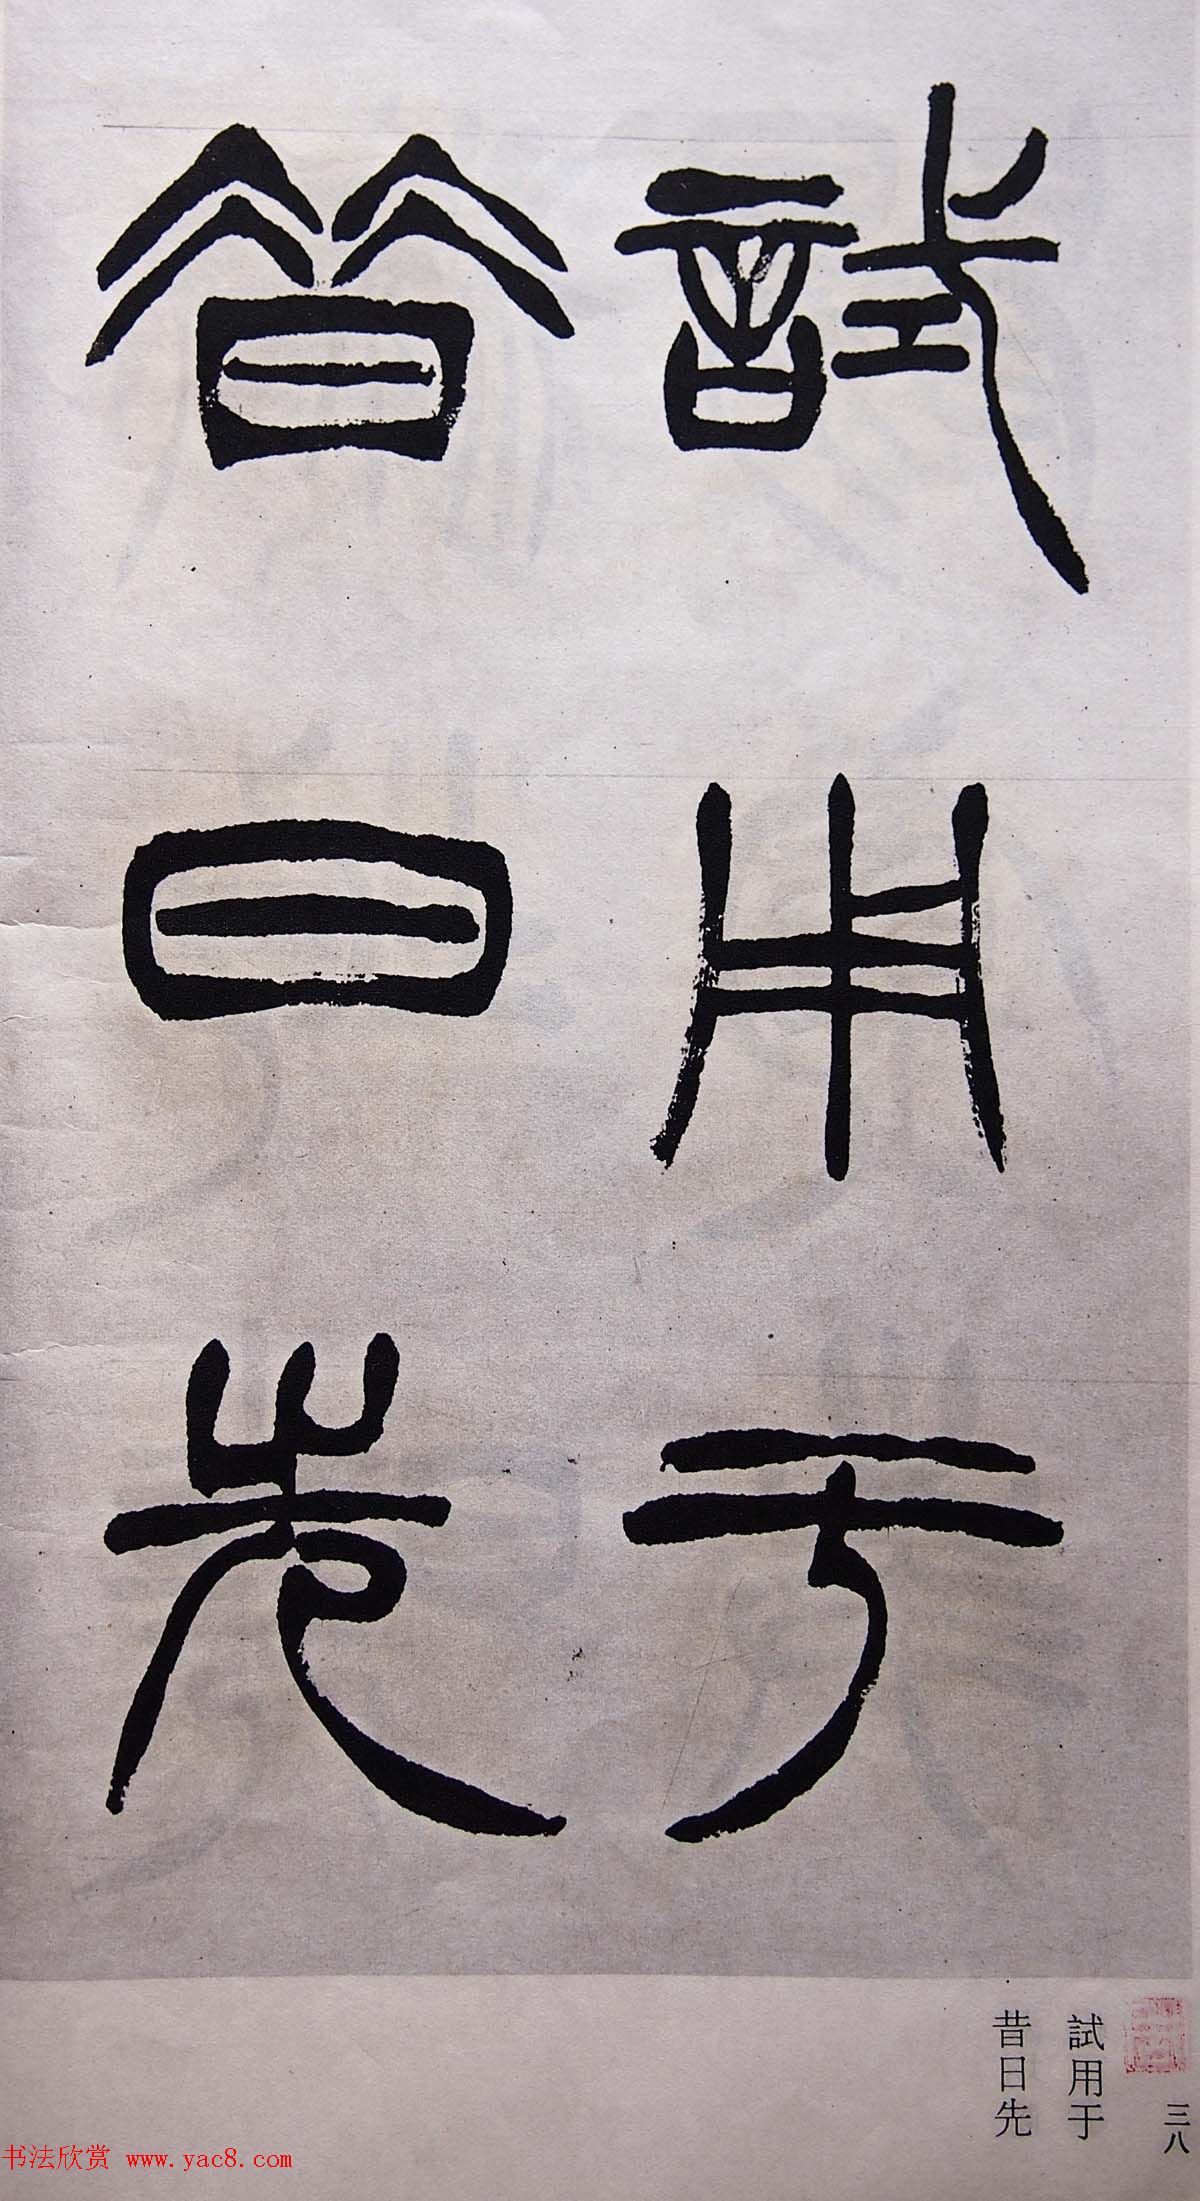 試用于
昔日先
試用于
昔日先
三八
书法欣赏 www.yac8.com